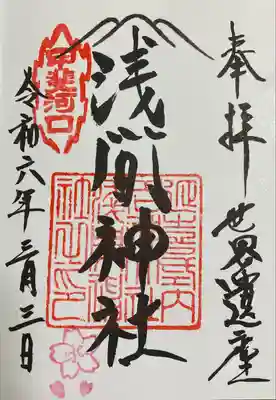 奉拝 世界遺産
浅間神社
甲斐河口
令和六年三月三日